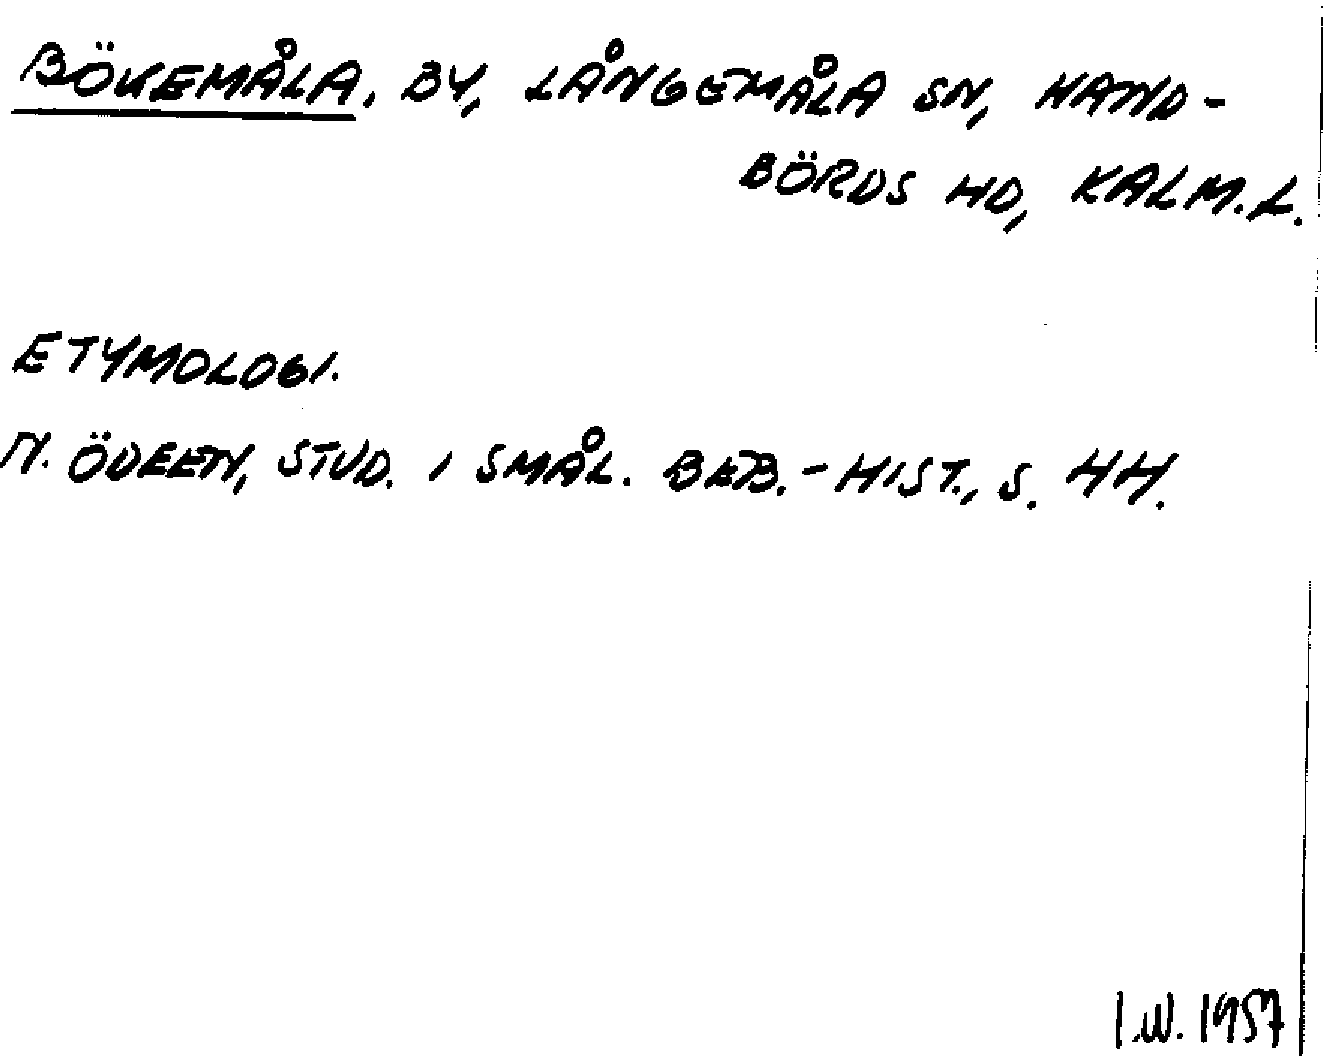 BÖKEMÅLA, BY, LÅNGEMÅLA SN, HAND-
BÖRDS HD, KALM. L.
ETYMOLOGI.
N. ÖDEEN, STUD. I SMÅL. BEB.-HIST., S. 44.
I.W. 1957